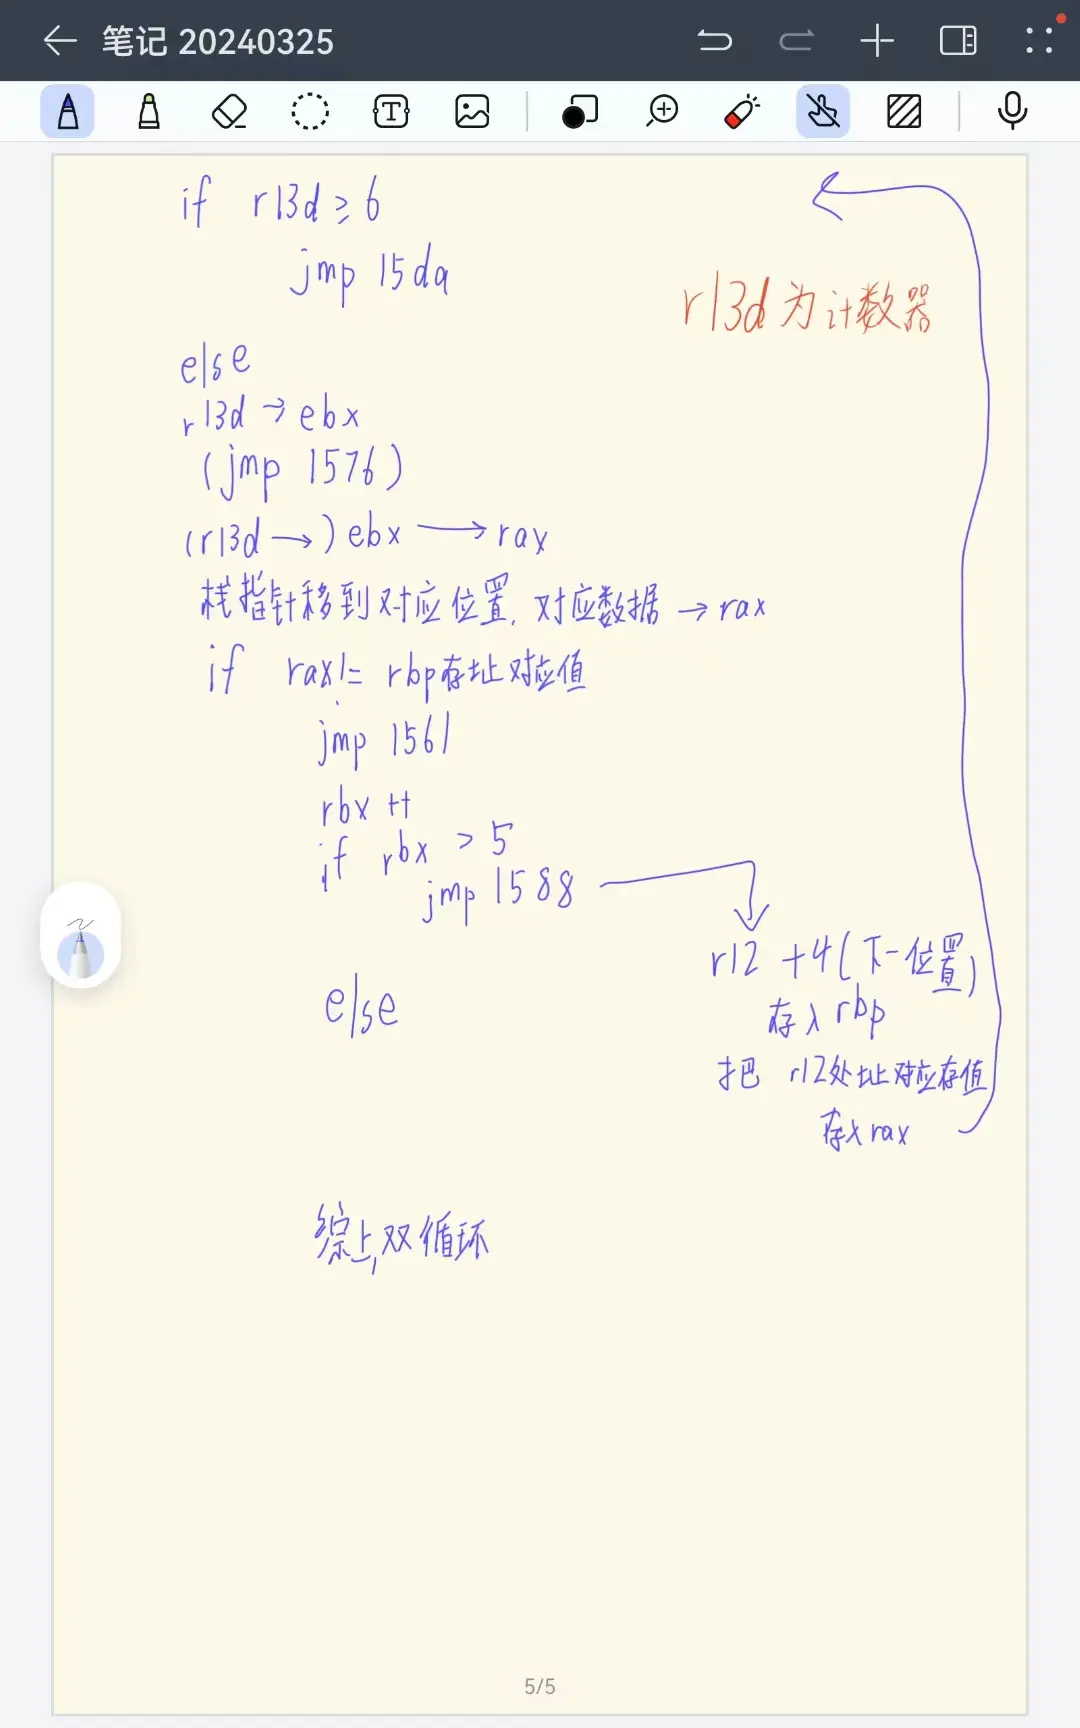 笔记 20240325
if r13d ≥ 6
jmp 15da
r13d为计数器
else
r13d → ebx
(jmp 1576)
(r13d →) ebx → rax
栈指针移到对应位置, 对应数据 → rax
if rax != rbp存址对应值
jmp 1561
rbx ++
if rbx > 5
jmp 1588
r12 +4 (下一位置)
存入 rbp
else
把 r12处址对应存值
存入 rax
综上,双循环
5/5